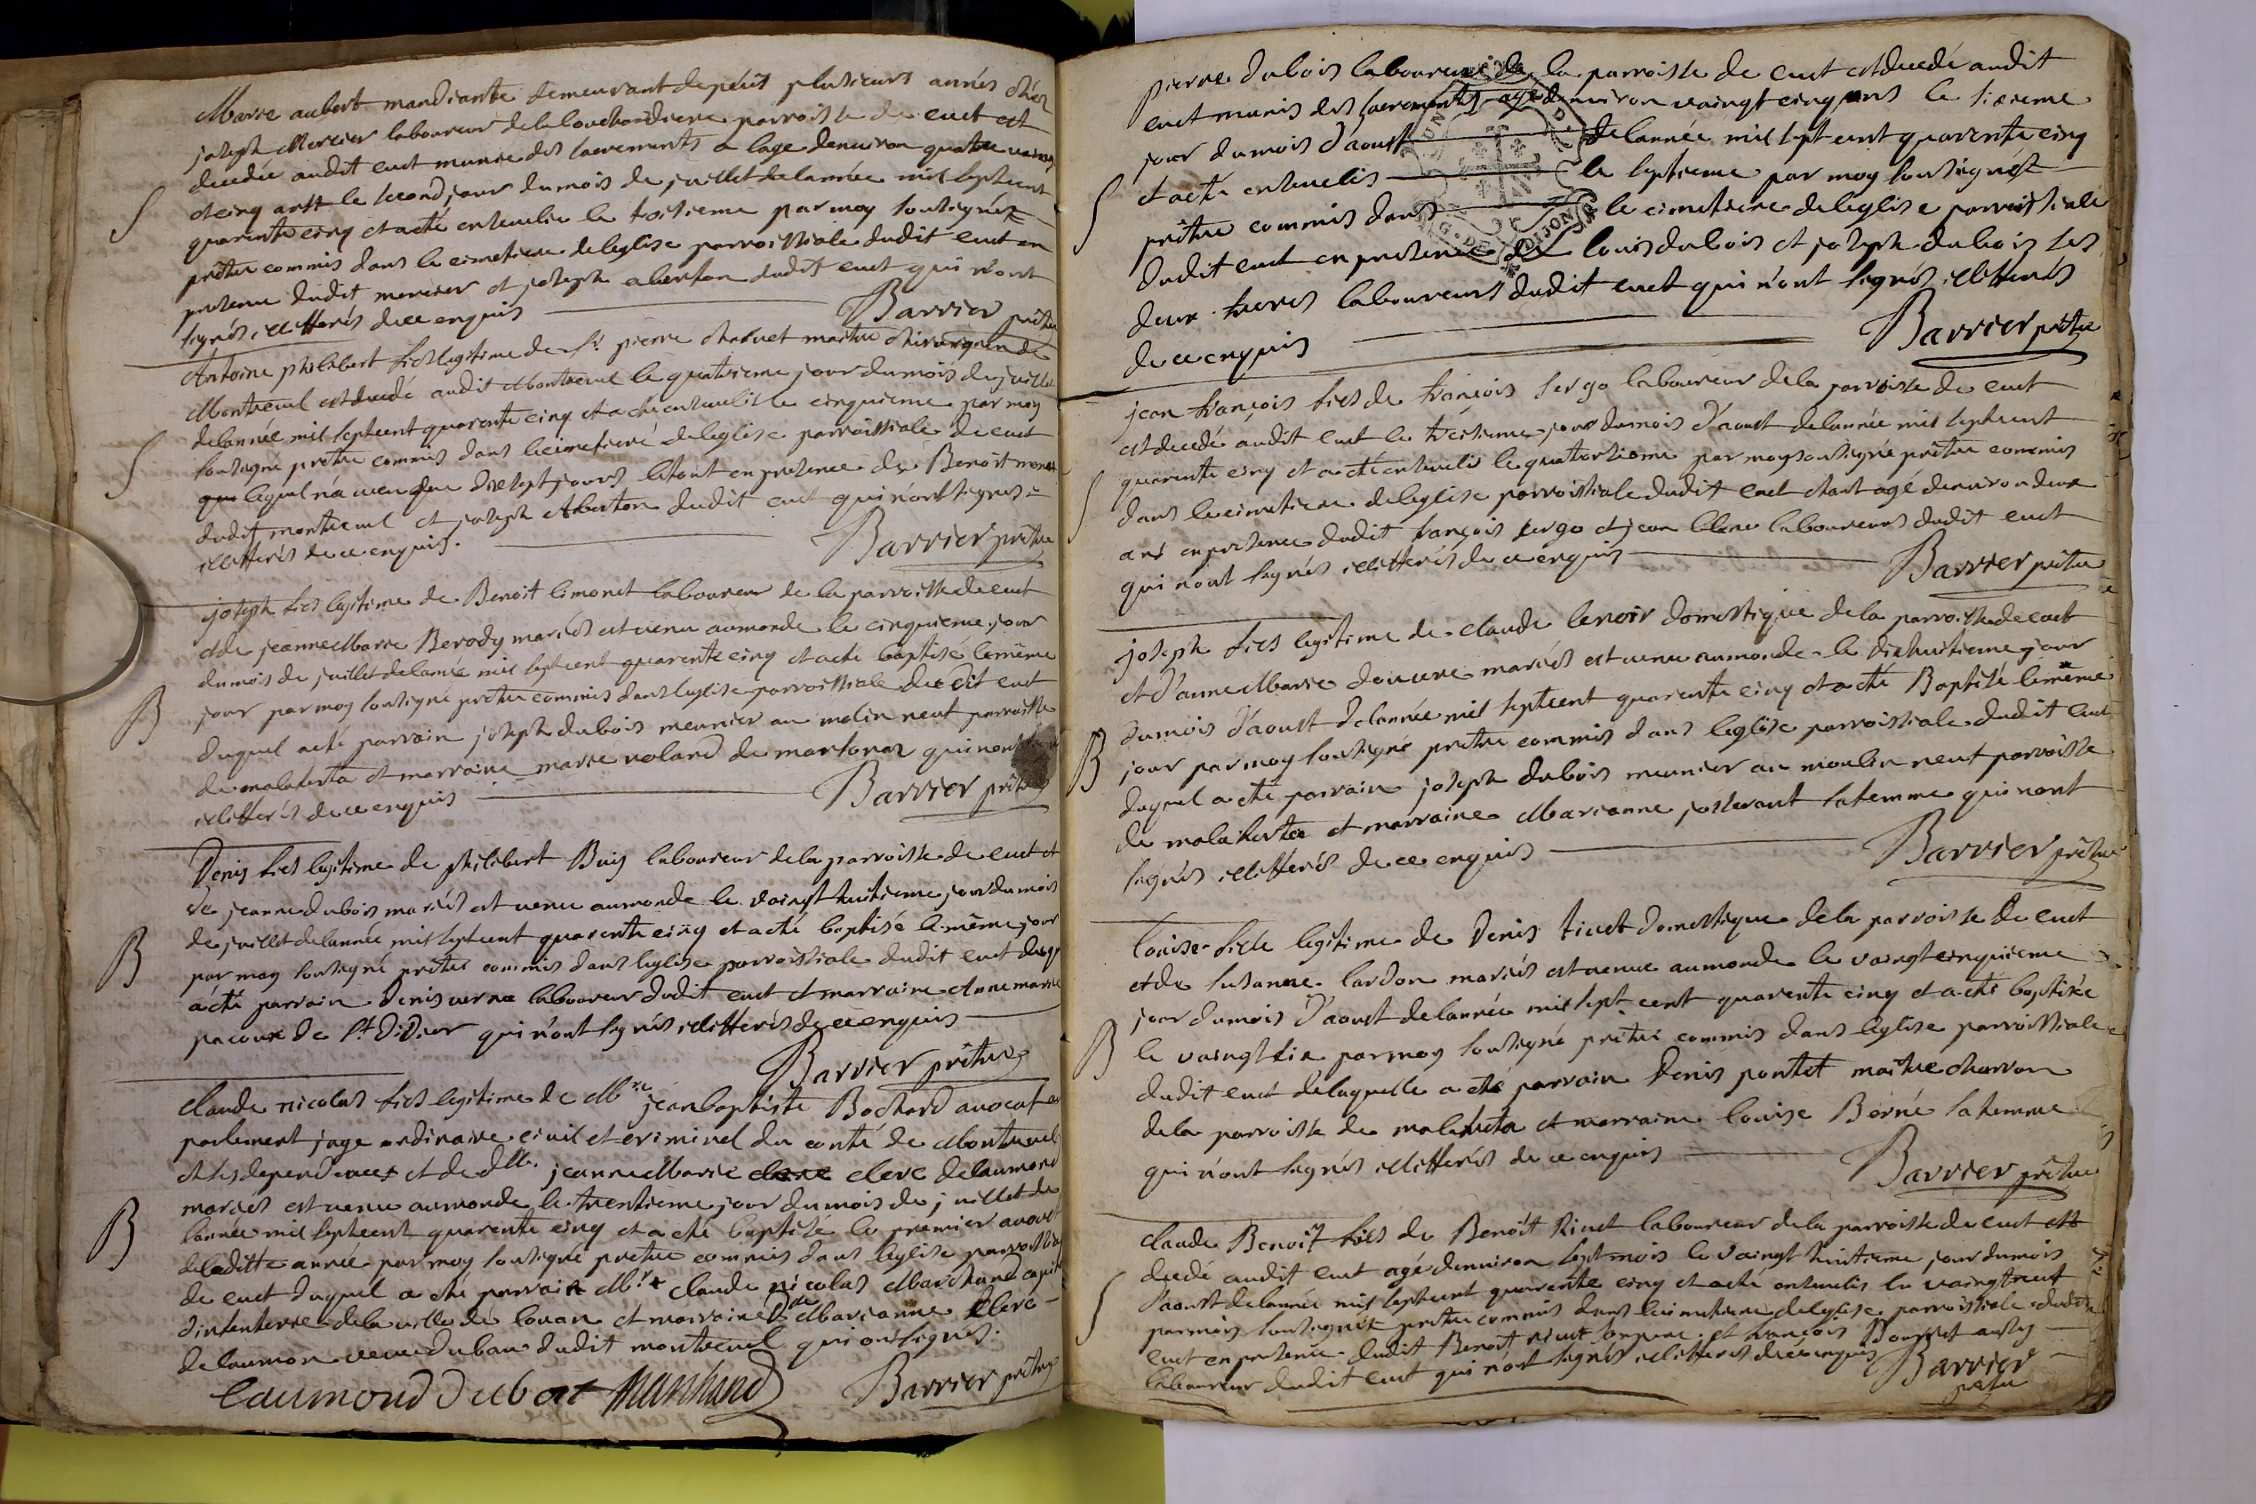 Marie aubert mandiante demeurant depuis plusieurs annés chéz
joseph Mercier laboureur de la parroisse de cuet est
decedée audit cuet munie des sacrements a lage denviron quatre vaing
et cinq ans le second jour du mois de juillet de lannée mil septcent
quarente cinq et a eté ensevelie le troisieme par moy soussigné
prêtre commis dans le cimetiere de leglise parroissiale dudit cuet en
presence dudit mercier et joseph aberton dudit cuet qui n'ont
signés illitterés de ce enquis
Barrier prêtre
Antoine philibert fils legitime de Sr pierre charvet maitre chirurgien de
Montreuil est decedé audit Montreuil le quatrieme jour du mois de juillet
de lannée mil septcent quarente cinq et a eté ensevelit le cinquieme par moy
soussigné prêtre commis dans le cimetiere de leglise parroissiale de cuet
lequel n'a vecu que dixsept jours le tout en presence de Benoit
dudit montreuil et joseph Aberton dudit cuet qui n'ont signes
illitterés de ce enquis.
Barrier prêtre
S
S
joseph fils legitime de Benoit limonet laboureur de la parroisse de cuet
et de jeanne Marie Berody mariés est venu au monde le cinquieme jour
du mois de juillet de lannée mil septcent quarente cinq et a eté baptisé le même
jour par moy soussigné prêtre commis dans leglise parroissiale de dit cuet
duquel a eté parrain joseph dubois meunier au molin neuf parroisse
de malaferta et marraine marie volard de marsonas qui n'ont
illitterés de ce enquis
Barrier prêtre
B
Denis fils legitime de philibert Buis laboureur de la parroisse de cuet et
de jeanne dubois mariés est venu au monde le vaingt huitieme jour du mois
de juillet de lannée mil septcent quarente cinq et a eté baptisé le même jour
par moy soussigné prêtre commis dans leglise parroissiale dudit cuet duq
a eté parrain Denis verne laboureur dudit cuet et marraine Anne marie
pacoux de St Didier qui n'ont signés illitterés de ce enquis
Barrier prêtre
B
Claude nicolas fils legitime de Mre jean baptiste Bochard avocat au
parlement juge ordinaire civil et criminel du conté de Montreuil
et ses dependences et de dlle. jeanne Marie clerc de laumond
mariés est venu au monde le trentieme jour du mois de juillet de
lannée mil septcent quarente cinq et a eté baptisé le premier aoust
de laditte année par moy soussigné prêtre commis dans leglise parroissia
de cuet duquel a eté parrain Mre claude nicolas Marchand capit
d'infenterie de la ville de louan et marraine Dde Marianne clerc
de laumon veuve dubau dudit montreuil qui ont signés.
laumond Dubat Marchand
Barrier prêtre
B
pierre dubois laboureur de la parroisse de cuet est decedé audit
cuet munis des sacrements agé d'environ vaingt cinq ans le sixieme
jour du mois d'aoust de lannée mil sept cent quarente cinq
et a eté ensevelis le septieme par moy soussigné
prêtre commis dans le cimetiere de leglise parroissiale
dudit cuet en presence de louis dubois et joseph dubois ses
deux freres laboureurs dudit cuet qui n'ont signés illitterés
de ce enquis
Barrier prêtre
S
DIJON
jean françois fils de françois fergo laboureur de la parroisse de cuet
est decedé audit cuet le treisieme jour du mois d'aoust de lannée mil septcent
quarente cinq et a eté ensevelis le quatorsieme par moy soussigné prêtre commis
dans le cimetiere de leglise parroissiale dudit cuet etant agé denviron deux
ans en presence dudit françois fergo et jean laboureurs dudit cuet
qui n'ont signés illitterés de ce enquis
Barrier prêtre
S
joseph fils legitime de claude lenoir domestique de la parroisse de cuet
et d'anne Marie mariés est venu au monde le dixhuitieme jour
du mois d'aoust de lannée mil septcent quarente cinq et a eté Baptisé le même
jour par moy soussigné prêtre commis dans leglise parroissiale dudit cuet
duquel a eté parrain joseph dubois meunier au moulin neuf parroisse
de malaferta et marraine Marianne josserant sa femme qui n'ont
signés illitterés de ce enquis
Barrier prêtre
B
louise fille legitime de Denis domestique de la parroisse de cuet
et de susanne lardon mariés est venue au monde le vaingt cinquieme
jour du mois d'aoust de lannée mil sept cent quarente cinq et a eté baptisée
le vaingt six par moy soussigné prêtre commis dans leglise parroissiale
dudit cuet de laquelle a eté parrain Denis pontet maitre charron
de la parroisse de malaferta et marraine louise Borné sa femme
qui n'ont signés illitterés de ce enquis
Barrier prêtre
B
claude Benoit fils de Benoit Rivet laboureur de la parroisse de cuet est
decedé audit cuet agé denviron sept mois le vaingt huitieme jour du mois
d'aoust de lannée mil septcent quarente cinq et a eté ensevelis le vaingt neuf
par moy soussigné prêtre commis dans le cimetiere de leglise parroissiale dudit
cuet en presence dudit Benoit rivet son pere et françois aussy
laboureur dudit cuet qui n'ont signés illitterés de ce enquis
Barrier
prêtre
S